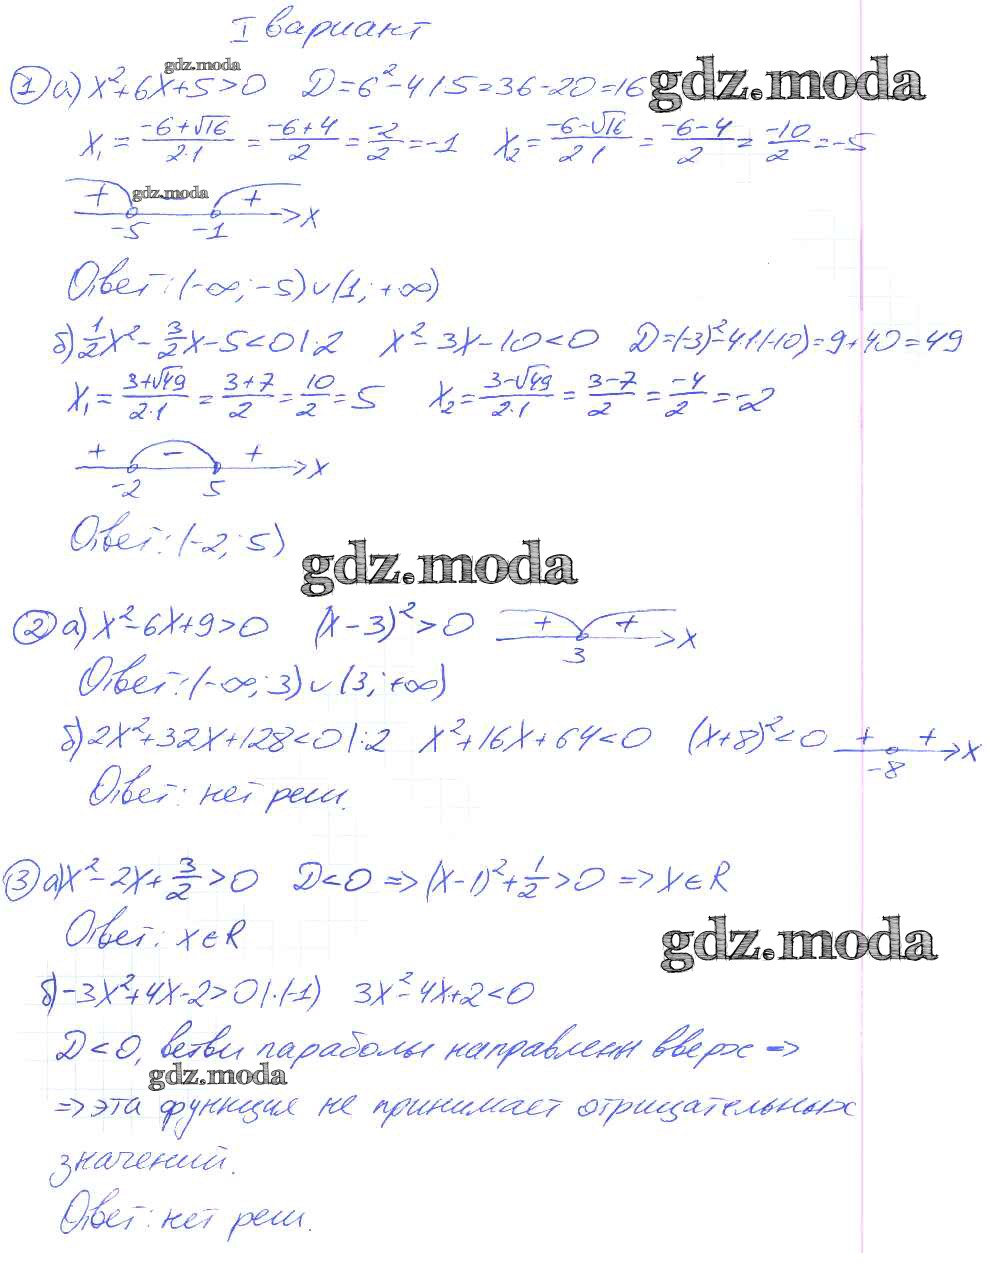 I вариант
gdz.moda
① а) x²+6x+5>0 D=6²-4·1·5=36-20=16 gdz.moda
x₁ = (-6+√16)/(2·1) = (-6+4)/2 = -2/2 = -1 x₂ = (-6-√16)/(2·1) = (-6-4)/2 = -10/2 = -5
+ gdz.moda +
-5 -1 x
Ответ: (-∞; -5)∪(1; +∞)
б) 1/2x² - 3/2x - 5<0 |·2 x²-3x-10<0 D=(-3)²-4·1·(-10)=9+40=49
x₁ = (3+√49)/(2·1) = (3+7)/2 = 10/2 = 5 x₂ = (3-√49)/(2·1) = (3-7)/2 = -4/2 = -2
+ - +
-2 5 x
Ответ: (-2; 5)
gdz.moda
② а) x²-6x+9>0 (x-3)²>0 + + x
3
Ответ: (-∞; 3)∪(3; +∞)
б) 2x²+32x+128<0 |:2 x²+16x+64<0 (x+8)²<0 + + x
-8
Ответ: нет реш.
③ а) x²-2x+3/2>0 D<0 => (x-1)²+1/2>0 => x∈R
Ответ: x∈R
gdz.moda
б) -3x²+4x-2>0 |·(-1) 3x²-4x+2<0
D<0, ветви параболы направлены вверх =>
gdz.moda
=> эта функция не принимает отрицательных
значений.
Ответ: нет реш.